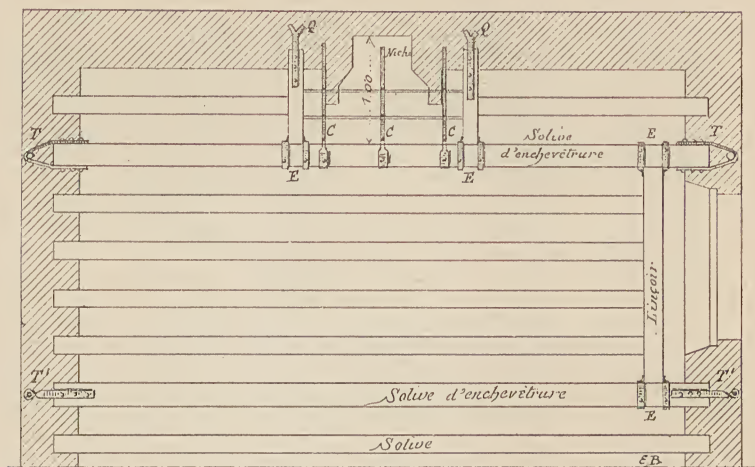 Q
Q
Niche
1.00
T
C
C
C
Solive
d'enchevêtrure
E
T
E
E
Linçoir
T'
Solive d'enchevêtrure
T'
E
Solive
E.B.